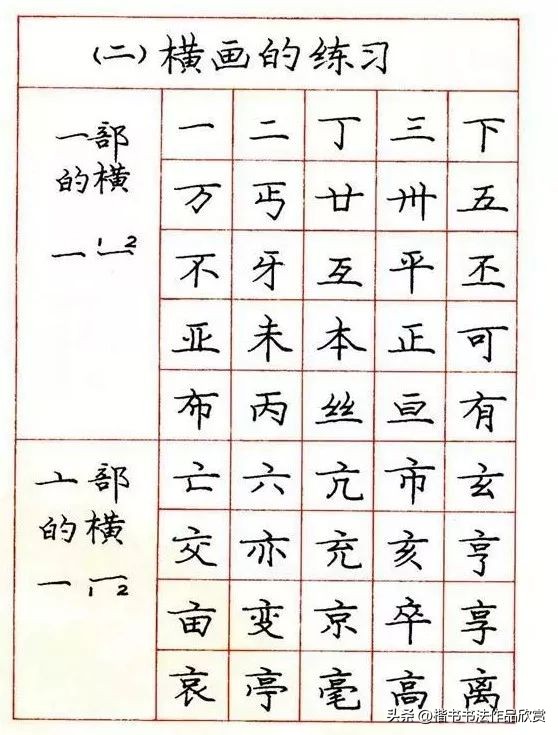 (二)横画的练习
一部
的横
一 1 2
一 二 丁 三 下
万 丐 廿 卅 五
不 牙 互 平 丕
亚 未 本 正 可
布 丙 丝 亘 有
亠部
的横
一 1 2
亡 六 亢 市 玄
交 亦 充 亥 亨
亩 变 京 卒 享
哀 亭 毫 高 离
头条 @楷书书法作品欣赏